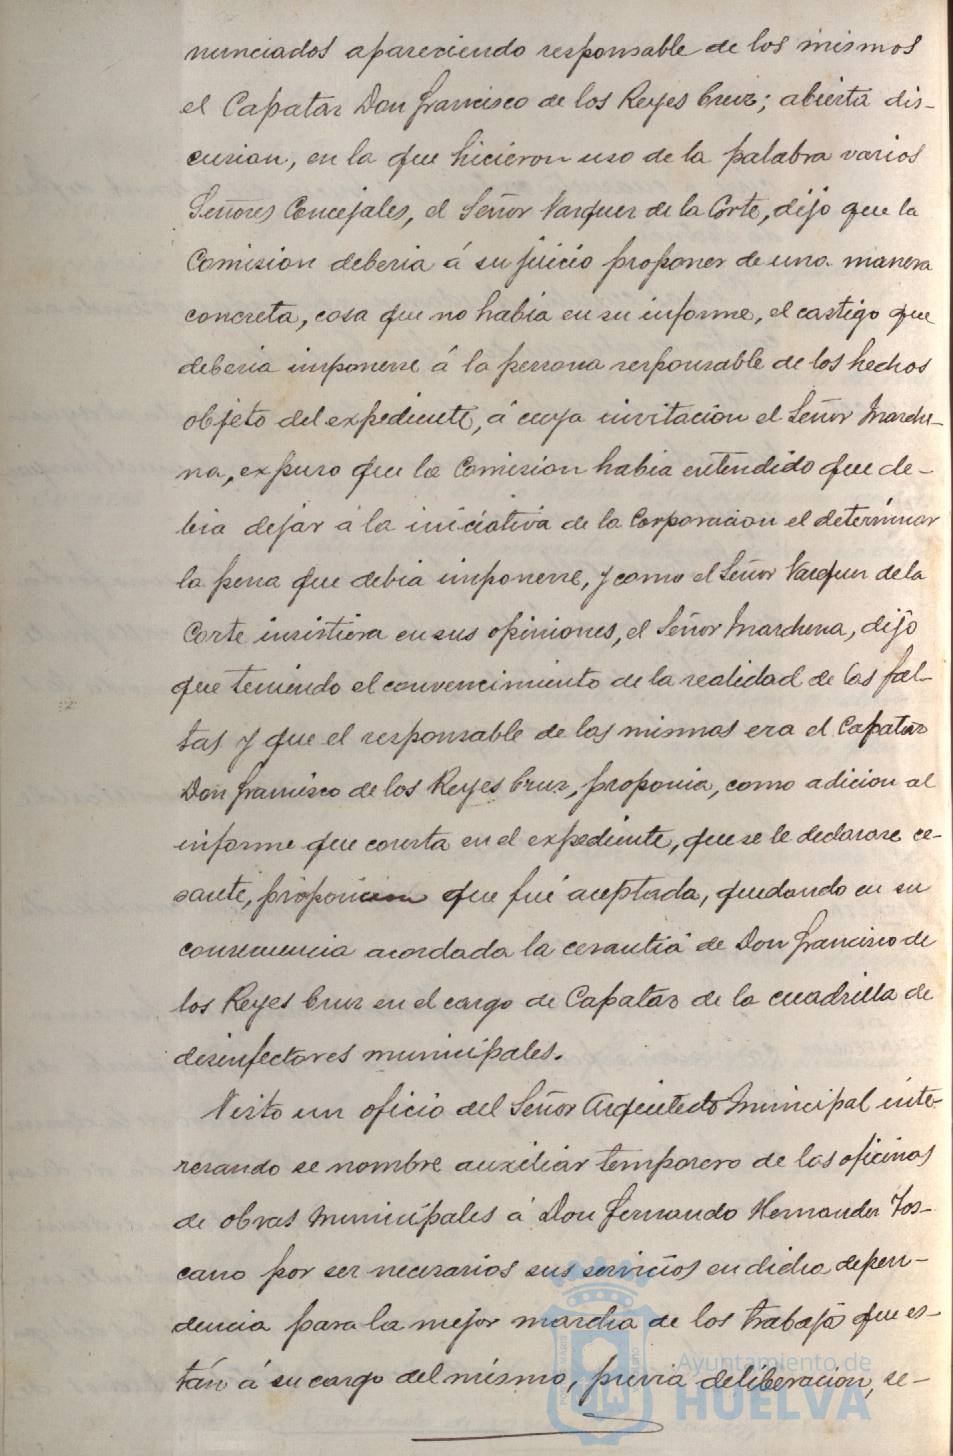 nunciados apareciendo responsable de los mismos
el Capataz Don Francisco de los Reyes Cruz; abierta dis-
cusion, en la que hicieron uso de la palabra varios
Señores Concejales, el Señor Vazquez de la Corte, dijo que la
Comision deberia á su juicio proponer de una manera
concreta, cosa que no habia en su informe, el castigo que
deberia imponerse á la persona responsable de los hechos
objeto del expediente, á cuya invitacion el Señor Marche-
na, expuso que la Comision habia entendido que de-
bia dejar á la iniciativa de la Corporacion el determinar
la pena que debia imponerse, y como el Señor Vazquez de la
Corte insistiera en sus opiniones, el Señor Marchena, dijo
que teniendo el convencimiento de la realidad de las fal-
tas y que el responsable de las mismas era el Capataz
Don Francisco de los Reyes Cruz, proponia, como adicion al
informe que consta en el expediente, que se le declarase ce-
sante, proposicion que fué aceptada, quedando en su
consecuencia acordada la cesantia de Don Francisco de
los Reyes Cruz en el cargo de Capataz de la cuadrilla de
desinfectores municipales.
Visto un oficio del Señor Arquitecto Municipal inte-
resando se nombre auxiliar temporero de las oficinas
de obras Municipales á Don Fernando Hernandez Tos-
cano por ser necesarios sus servicios en dicha depen-
dencia para la mejor marcha de los trabajos que es-
tán á su cargo del mismo, previa deliberacion, se-
Ayuntamiento de
HUELVA